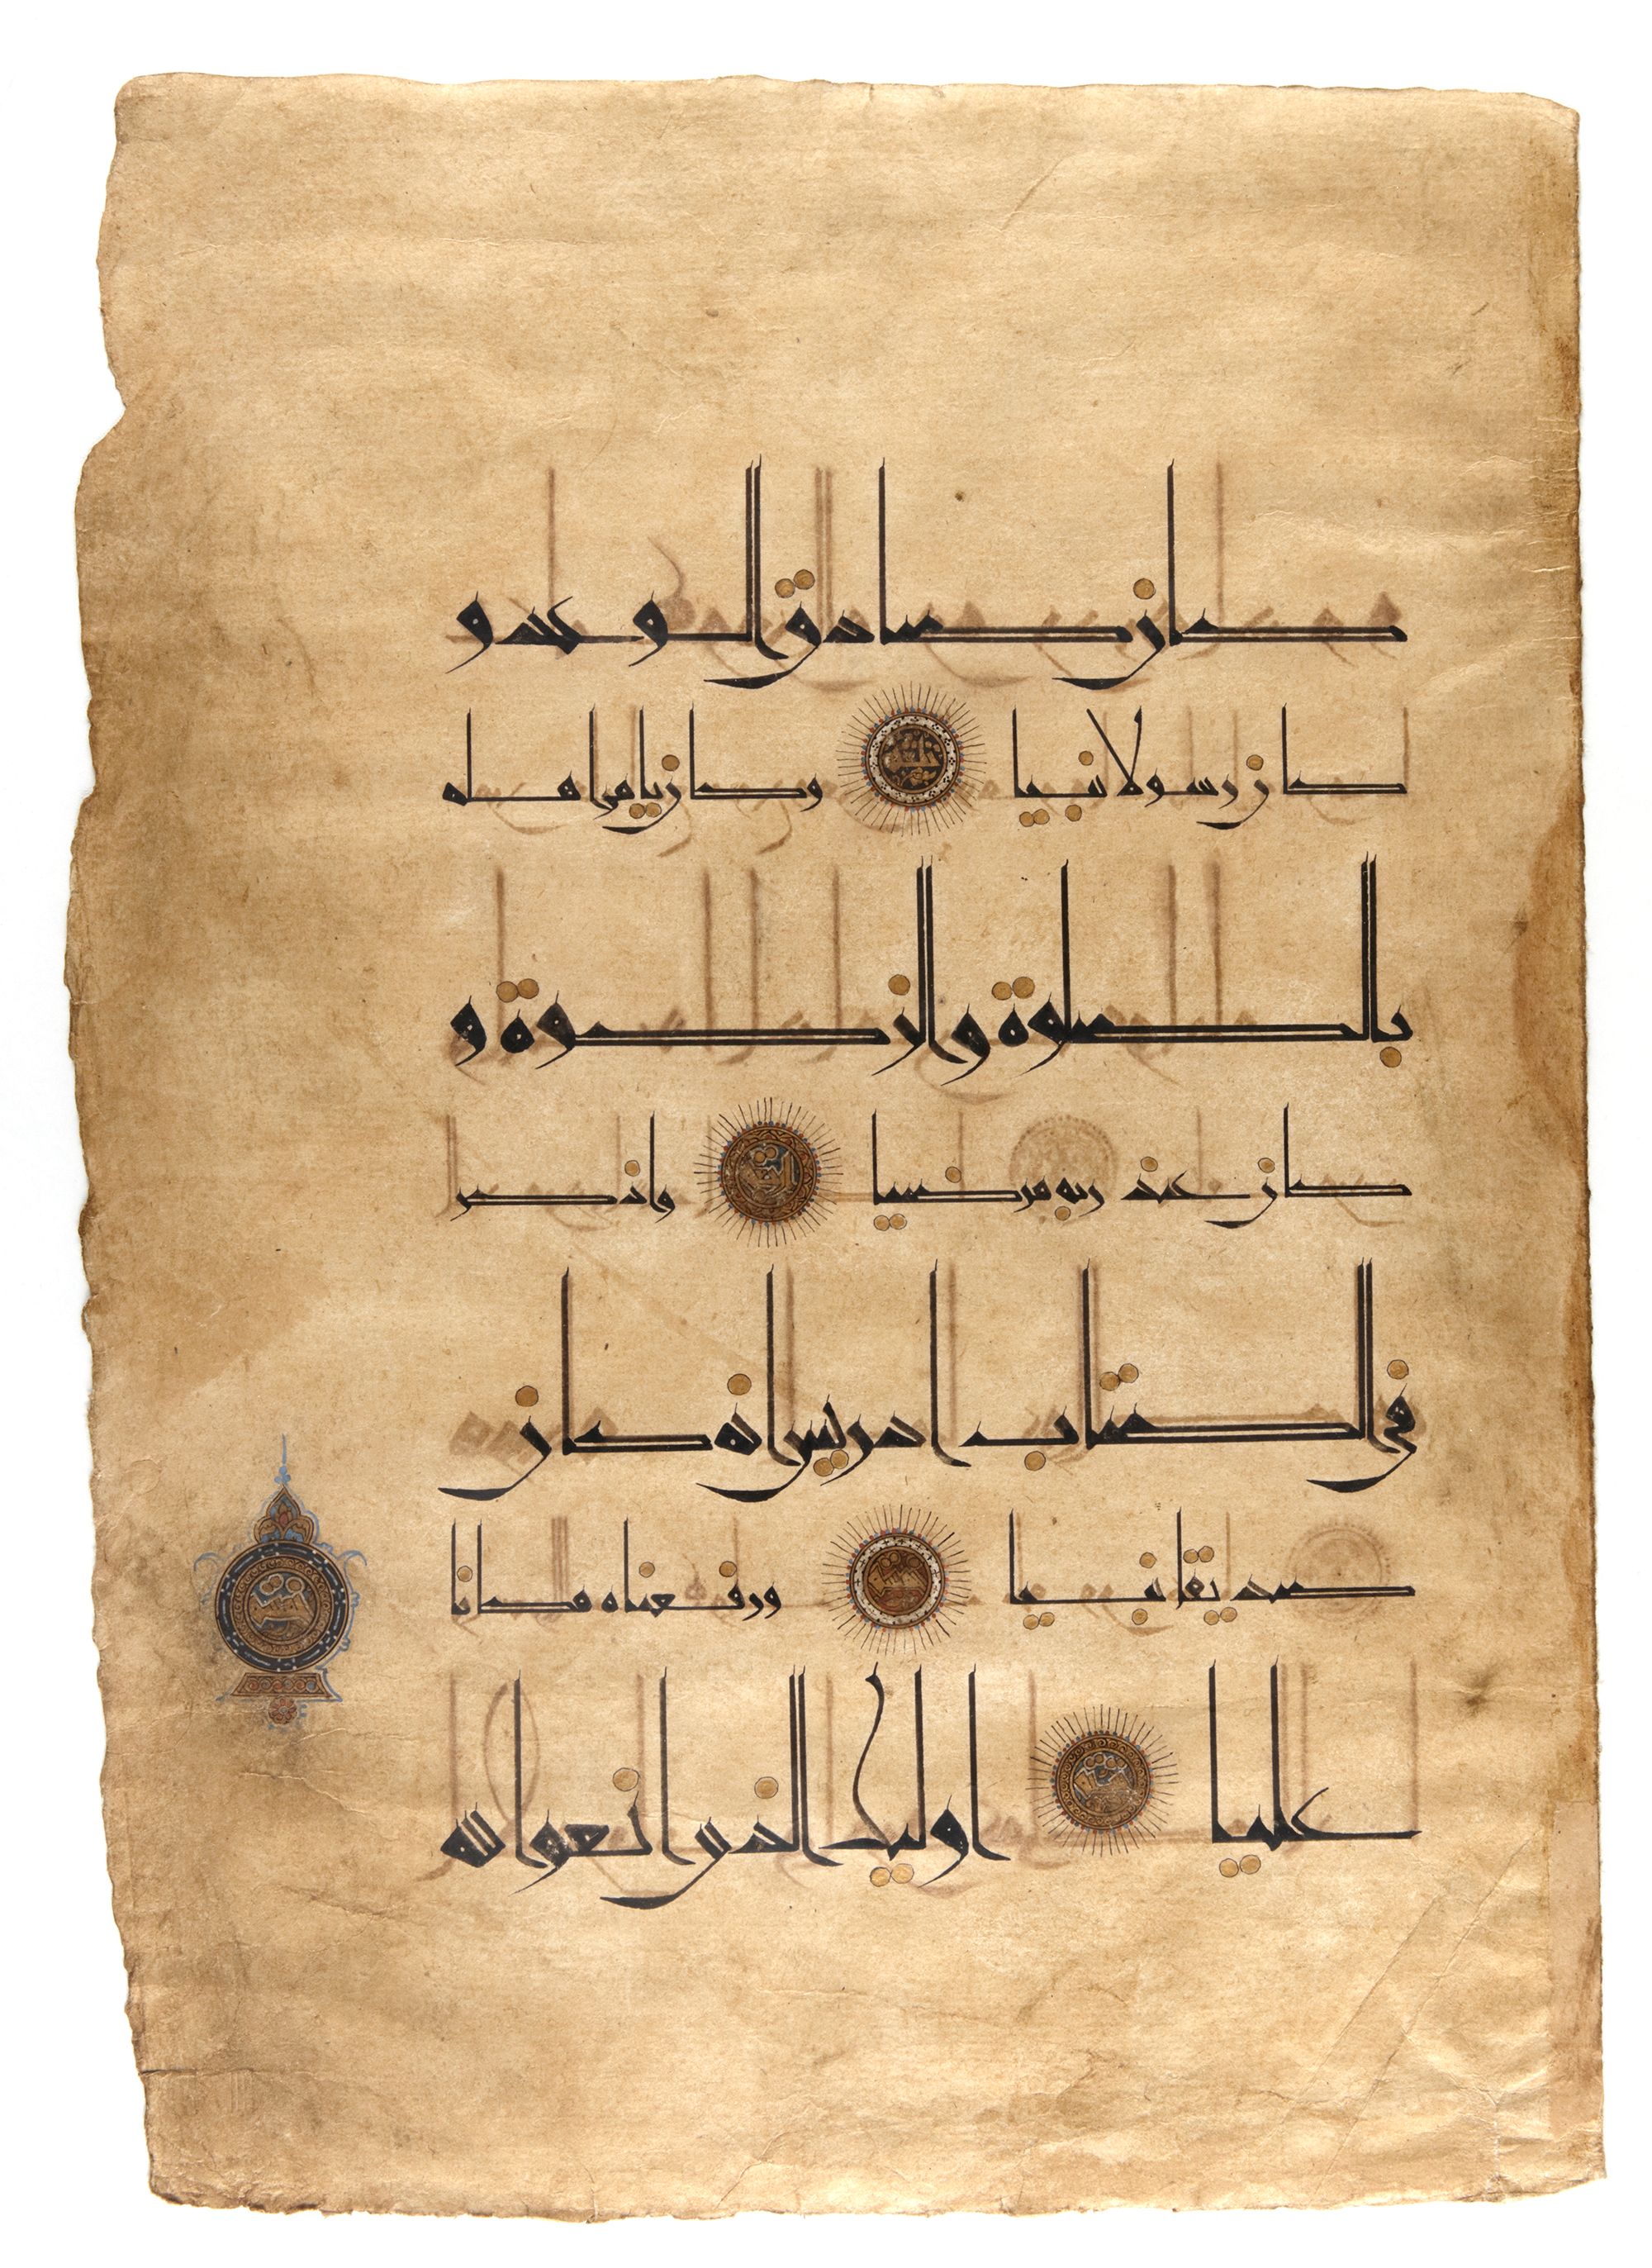 كان صادق الوعد و
كان رسولا نبيا وكان يامر اهله
بالصلوة والزكوة و
كان عند ربه مرضيا واذكر
في الكتاب ادريس انه كان
صديقا نبيا ورفعناه مكانا
عليا اوليك الذين انعم الله